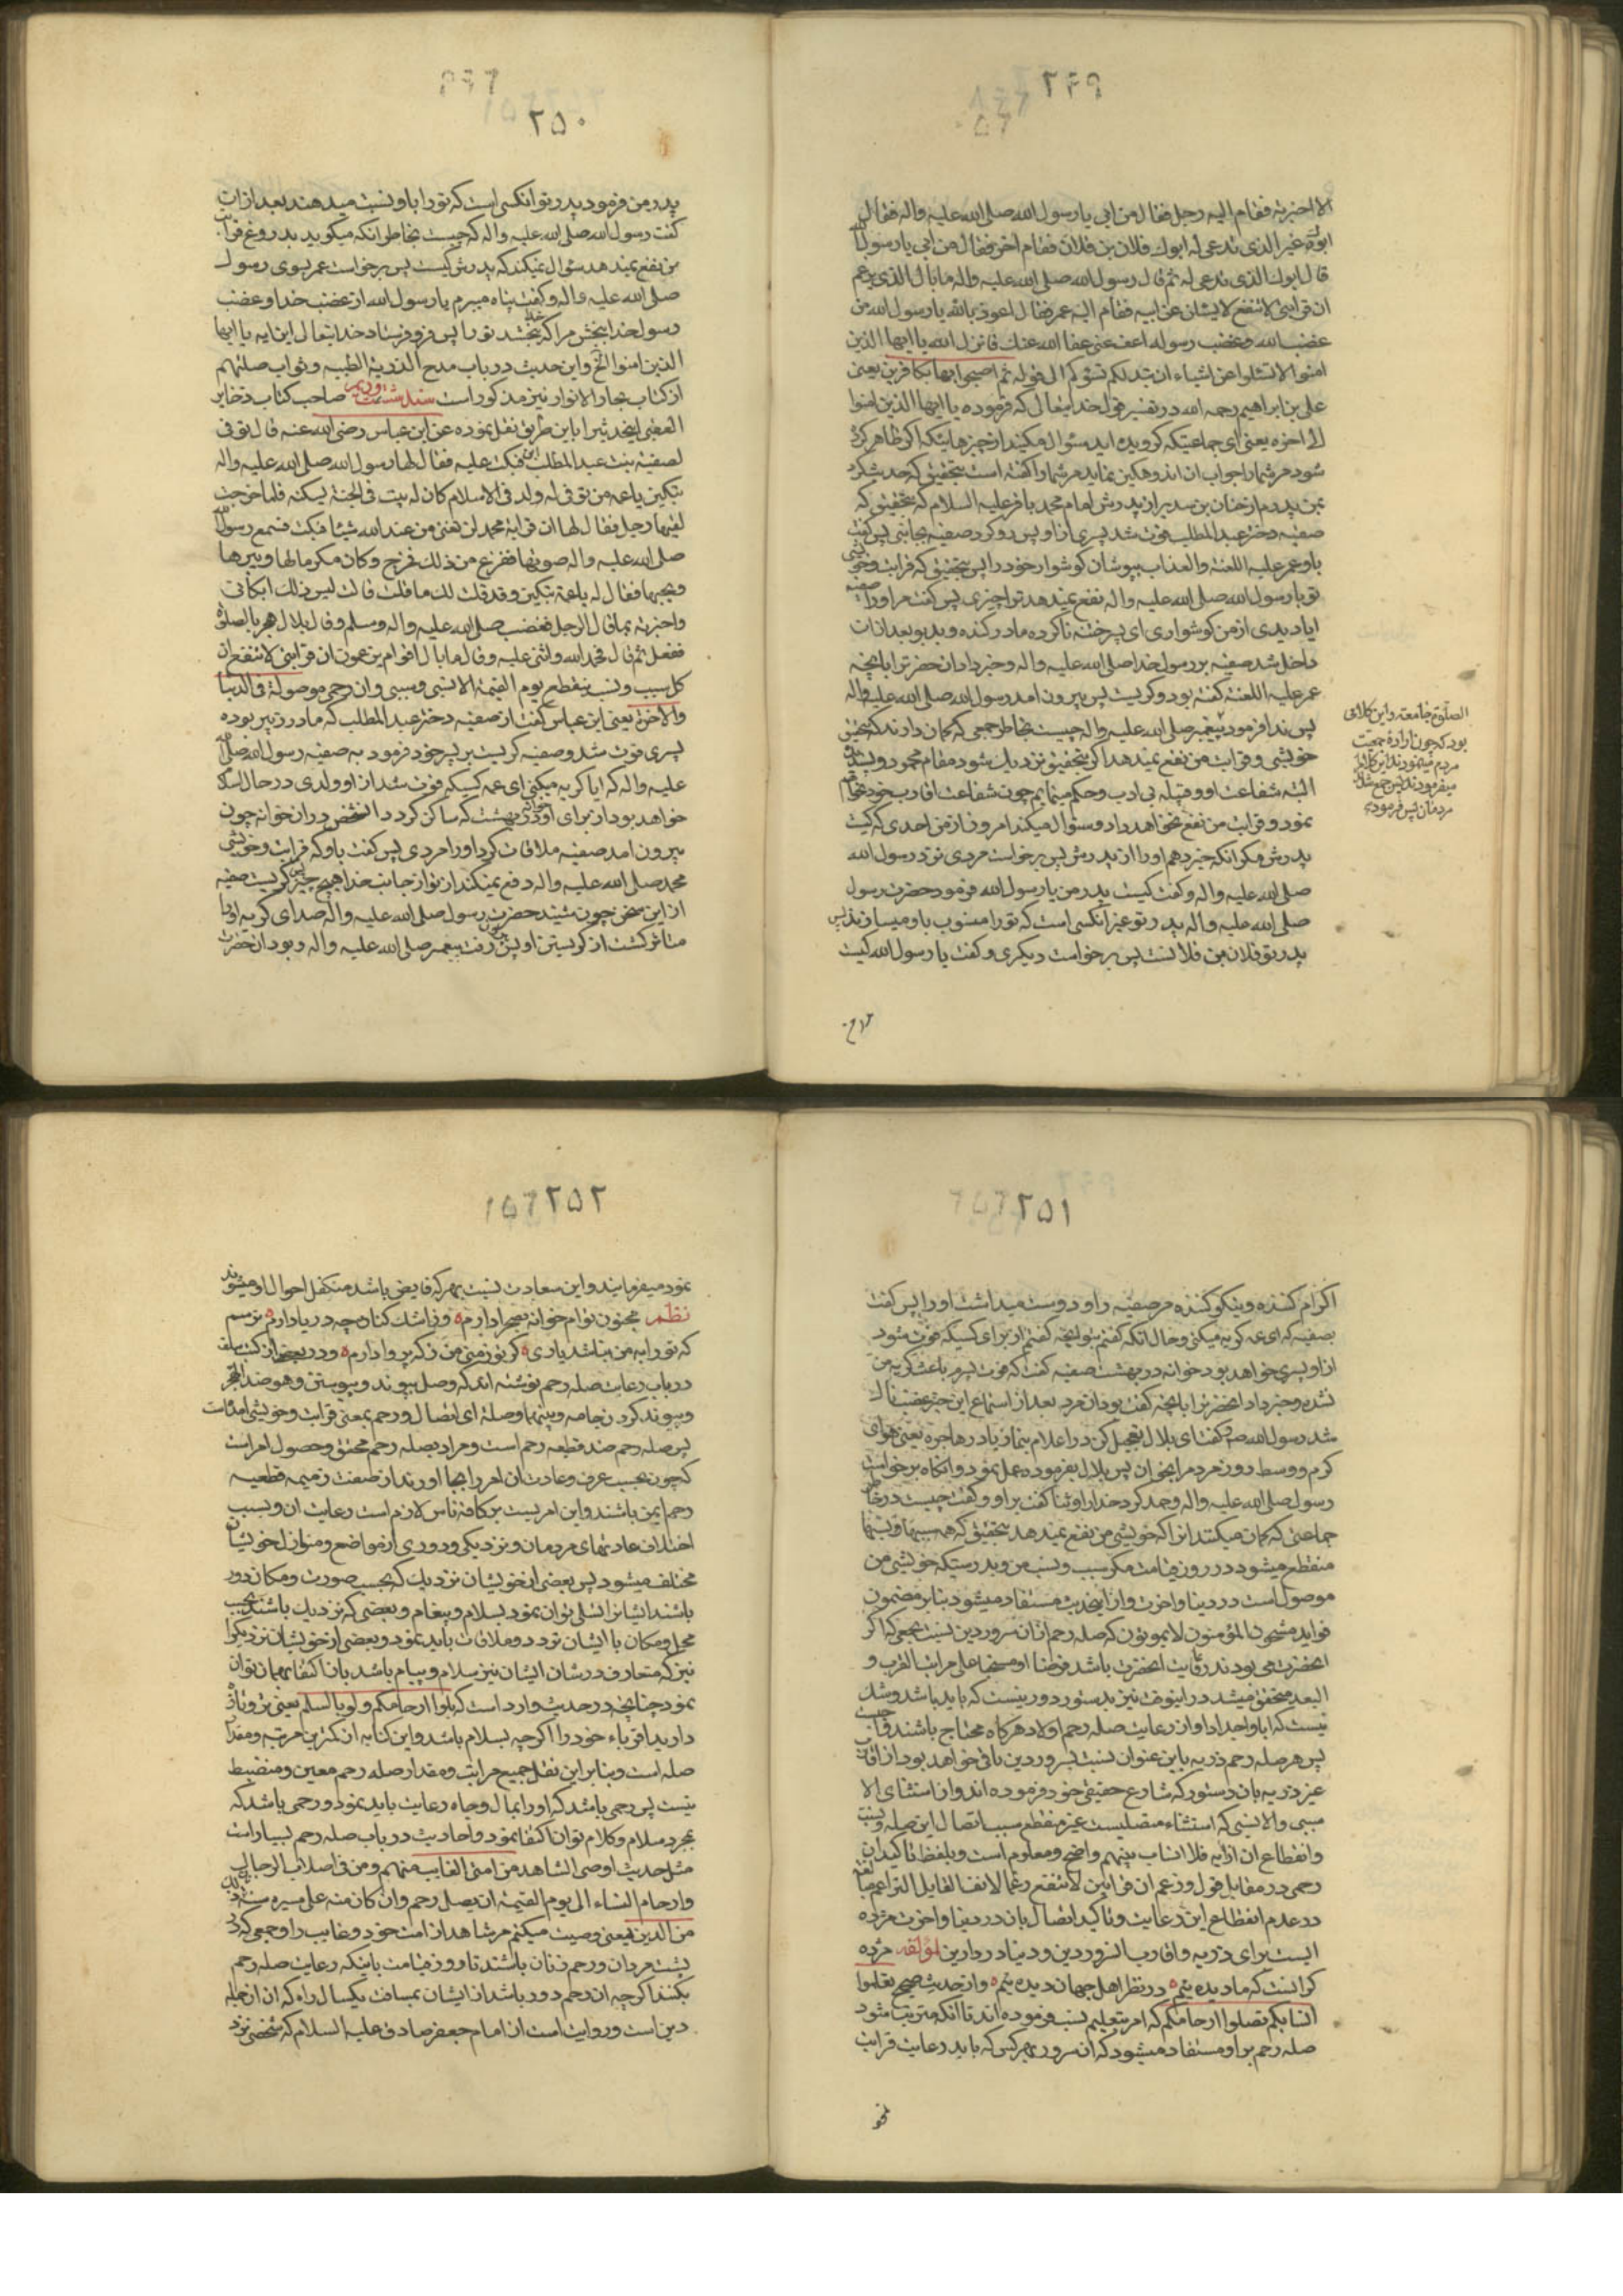 ٢۴٩
الا اخبرته فقام الیه رجل فقال من ابی یا رسول الله صلی الله علیه واله فقال
ابوک غیر الذی تدعی له ابوک فلان بن فلان فقام اخر فقال من ابی یا رسول الله
قال ابوک الذی تدعی له ثم قال رسول الله صلی الله علیه واله ما بال الذی یزعم
ان قرابتی لا تنفع لا یسئلن عن ابیه فقام الیه عمر فقال اعوذ بالله یا رسول الله من
غضب الله و غضب رسوله اعف عنی عفا الله عنک فانزل الله یا ایها الذین
امنوا لا تسئلوا عن اشیاء ان تبد لکم تسؤکم الی قوله ثم اصبحوا بها کافرین یعنی
علی بن ابراهیم رحمه الله در تفسیر قول خدایتعالی که فرموده یا ایها الذین امنوا
الی اخره یعنی ای جماعتیکه گرویده اید سئوال مکنید از چیزهائیکه اگر ظاهر کرده
شود مر شما را جواب ان اندوهگین نماید مر شما را گفته است بتحقیق که حدیث کرد
بمن پدرم از حنان بن سدیر از پدرش از امام محمد باقر علیه السلام که بتحقیق که
صفیه دختر عبد المطلب فوت شد پسری از او پس رو کرد صفیه بجانبی پس گفت
باو عمر علیه اللعنه والعذاب بپوشان گوشوار خود را پس بتحقیق که قرابت و خویشی
تو با رسول الله صلی الله علیه واله نفع نمیدهد تو را چیزی پس گفت مر او را صفیه
ایا دیدی از من گوشواری ای پسر ختنه ناکرده مادر کنده و بدبو بعد از ان
داخل شد صفیه بر رسول خدا صلی الله علیه واله و خبر داد ان حضرت را بانچه
عمر علیه اللعنه گفته بود و گریست پس بیرون امد رسول الله صلی الله علیه واله
پس ندا فرمود پیغمبر صلی الله علیه واله چیست بخاطر جمعی که گمان دارند که بتحقیق
خویشی و قرابت من نفع نمیدهد اگر بتحقیق نزدیک شود مقام محمود و پسندیده
البته شفاعت او و قبیله بی ادب و حکم مینمایم چون شفاعت اقارب خود خواهم
نمود و قرابت من نفع نخواهد داد و سئوال میکند امروز از من احدی که کیست
پدرش مگر انکه خبر دهم او را از پدرش پس برخواست مردی نزد رسول الله
صلی الله علیه واله و گفت کیست پدر من یا رسول الله فرمود حضرت رسول
صلی الله علیه واله پدر تو غیر انکسی است که تو را منسوب باو میسازند پس
پدر تو فلان بن فلانست پس برخواست دیگری و گفت یا رسول الله کیست
الصلوة جامعة و این کلامی
بود که چون اراده جمعیت
مردم مینمودند این کلام را
میفرمودند پس جمع شدند
مردمان پس فرمود
٢۵٠
پدر من فرمود پدر تو انکسی است که تو را باو نسبت میدهند بعد از ان
گفت رسول الله صلی الله علیه واله که چیست بخاطر انکه میگوید بدروغ قرابت
من نفع نمیدهد سئوال نمیکند که پدرش کیست پس برخواست عمر بسوی رسول
صلی الله علیه واله و گفت پناه میبرم یا رسول الله از غضب خدا و غضب
رسول خدا ببخش مرا که ببخشد تو را پس فرو فرستاد خدایتعالی این ایه یا ایها
الذین امنوا الخ و این حدیث در باب مدح الذریة الطیبه و ثواب صلتهم
از کتاب بحار الانوار نیز مذکور است سند شصت و دویم صاحب کتاب ذخایر
العقبی اینحدیث را باین طریق نقل نموده عن ابن عباس رضی الله عنه قال توفی
لصفیة بنت عبد المطلب ابن فبکت علیه فقال لها رسول الله صلی الله علیه واله
تبکین یا عمه من توفی له ولد فی الاسلام کان له بیت فی الجنة یسکنه فلما خرجت
لقیها رجل فقال لها ان قرابة محمد لن تغنی من عند الله شیئا فبکت فسمع رسول الله
صلی الله علیه واله صوتها ففزع من ذلک فخرج وکان مکرما لها و یبرها
ویحبها فقال له یا عمة تبکین وقد قلت لک ما قلت قالت لیس ذلک ابکانی
واخبرته بما قال الرجل فغضب صلی الله علیه واله وسلم وقال بلال هجر بالصلوة
ففعل ثم قال فحمد الله واثنی علیه وقال ما بال اقوام یزعمون ان قرابتی لا تنفع ان
کل سبب و نسب ینقطع یوم القیمة الا نسبی وسببی وان رحمی موصولة فی الدنیا
والاخرة یعنی ابن عباس گفت از صفیه دختر عبد المطلب که مادر زبیر بوده
پسری فوت شد و صفیه گریست بر پسر خود فرمود به صفیه رسول الله صلی الله
علیه واله که ایا گریه میکنی ای عمه کسیکه فوت شد از او ولدی در حال اسلام
خواهد بود از برای او خانه در بهشت که ساکن گردد انشخص در ان خوانه چون
بیرون امد صفیه ملاقات کرد او را مردی پس گفت باو که قرابت و خویشی
محمد صلی الله علیه واله دفع نمیکند از تو از جانب خدا هیچ چیز پس گریست صفیه
از این سخن چون شنید حضرت رسول صلی الله علیه واله صدای گریه او را
متاثر گشت از گریستن او پس بیرون رفت پیغمبر صلی الله علیه واله و بود ان حضرت
٢۵١
اکرام کننده و نیکو کننده مر صفیه را و دوست میداشت او را پس گفت
بصفیه که ای عمه گریه میکنی و حال انکه گفتم بتو انچه گفتم از برای کسیکه فوت شود
از او پسری خواهد بود خوانه در بهشت صفیه گفت که فوت پسرم باعث گریه من
نشده و خبر داد انحضرت را بانچه گفته بود ان مرد بعد از استماع این خبر غضبناک
شد رسول الله ص و گفت ای بلال تعجیل کن در اعلام بنماز باد در هاجره یعنی هوای
گرم و وسط روز مردم را بخوان پس بلال بفرموده عمل نمود و انگاه برخواست
رسول صلی الله علیه واله و حمد کرد خدا را و ثنا گفت بر او و گفت چیست در خاطر
جماعتی که گمان میکنند انرا که خویشی من نفع نمیدهد بتحقیق که همه سببها و نسبها
منقطع میشود در روز قیامت مگر سبب و نسب من و بدرستیکه خویشی من
موصول است در دنیا و اخرت و از اینحدیث مستفاد میشود بنا بر مضمون
فواید مشحون المؤمنون لا یموتون که صله رحم ازان سرور دین نسبت بجمعی که اگر
انحضرت می بودند رعایت انحضرت باشد فرضا او مستحبا علی مراتب القرب و
البعد متحقق میشد در اینوقت نیز بدستور دور نیست که باید باشد و شک
نیست که ابا و اجداد او ان رعایت صله رحم اولاد هر گاه محتاج باشند واجبست
پس هر صله رحم ذریه باین عنوان نسبت بسرور دین باقی خواهد بود از اقارب
غیر ذریه بان دستور که شارع حقیقی خود فرموده اند و ان استثنای الا
سببی والا نسبی که استثناء متصلیست غیر منقطع سبب اتصال این صله و نسب
وانقطاع ان ازایه فلا انساب بینهم واضح و معلوم است و بلفظ تاکید ان
رحمی در مقابل قول و زعم ان قرابتی لا تنتفع رغما لانف القایل التزاعم مبالغه
در عدم انقطاع این رعایت و تاکید اتصال بان در دنیا و اخرت مژده
ایست برای ذریه و اقارب انسرور دین و دنیا در دارین لمؤلفه مژده
کرانست که ما دیده ئیم در نظر اهل جهان دیده ئیم و از حدیث صحیح تعلموا
انسابکم تصلوا ارحامکم که امر بتعلیم نسب فرموده اند تا انکه مترتب شود
صله رحم بر او مستفاد میشود که ان سرور بهر کس که باید رعایت قرابت
٢۵٢
نمود میفرمایند و این سعادت نسبت بهر که فایض باشد متکفل احوال او میشوند
نظم مجنون توام خوانه بصحرا دارم وز اشک کنار دجه دریا دارم ترسم
که تو را به من نباشد یاری گر نوز منی من ز که پروا دارم و در بعضی از کتب سلف
در باب رعایت صله رحم نوشته اند که وصل پیوند و پیوستن و هو ضد الهجر
و پیوند کردن جامه و بینهما وصلة ای اتصال و رحم بمعنی قرابت و خویشی امده است
پس صله رحم ضد قطیعه رحم است و مراد بصله رحم محقق و حصول امر است
که چون بحسب عرف و عادت ان امر را بجا اورند از صفت ذمیمه قطعیه
رحم ایمن باشند و این امریست بر کافه ناس لازم است رعایت ان و بسبب
اختلاف عادتهای مردمان و نزدیکی و دوری از مواضع و منوازل خویشان
مختلف میشود پس بعضی از خویشان نزدیک که بحسب صورت و مکان دور
باشند ایشانرا تسلی توان نمود بسلام و پیغام و بعضی که نزدیک باشند بحسب
محل و مکان با ایشان تردد و ملاقات باید نمود و بعضی از خویشان نزدیک را
نیز که متعارف در شان ایشان نیز سلام و پیام باشد بان اکتفا بهمان توان
نمود چنانچه در حدیث وارد است که بلوا ارحامکم ولو بالسلم یعنی تر و تازه
دارید اقرباء خود را اگر چه بسلام باشد و این کنایه از کمترین مرتبه و مقدار
صله است و بنابر این نقل جمیع مراتب و مقدار صله رحم معین و منضبط
نیست پس رحمی باشد که او را بمال و جاه رعایت باید نمود و رحمی باشد که
بمجرد سلام و کلام توان اکتفا نمود و احادیث در باب صله رحم بسیار است
مثل حدیث اوصی الشاهد من امتی والغایب منهم ومن فی اصلاب الرجال
وارحام النساء الی یوم القیمة ان یصل رحم وان کان منه علی مسیره سنة فان ذلک
من الدین یعنی وصیت میکنم مر شاهد از امت خود و غایب را و جمعی که در
پشت مردان و رحم زنان باشند تا روز قیامت باینکه رعایت صله رحم
بکنند اگر چه ان رحم دور باشد از ایشان بمسافت یکسال راه که ان از جمله
دین است و روایت است از امام جعفر صادق علیه السلام که شخصی نزد